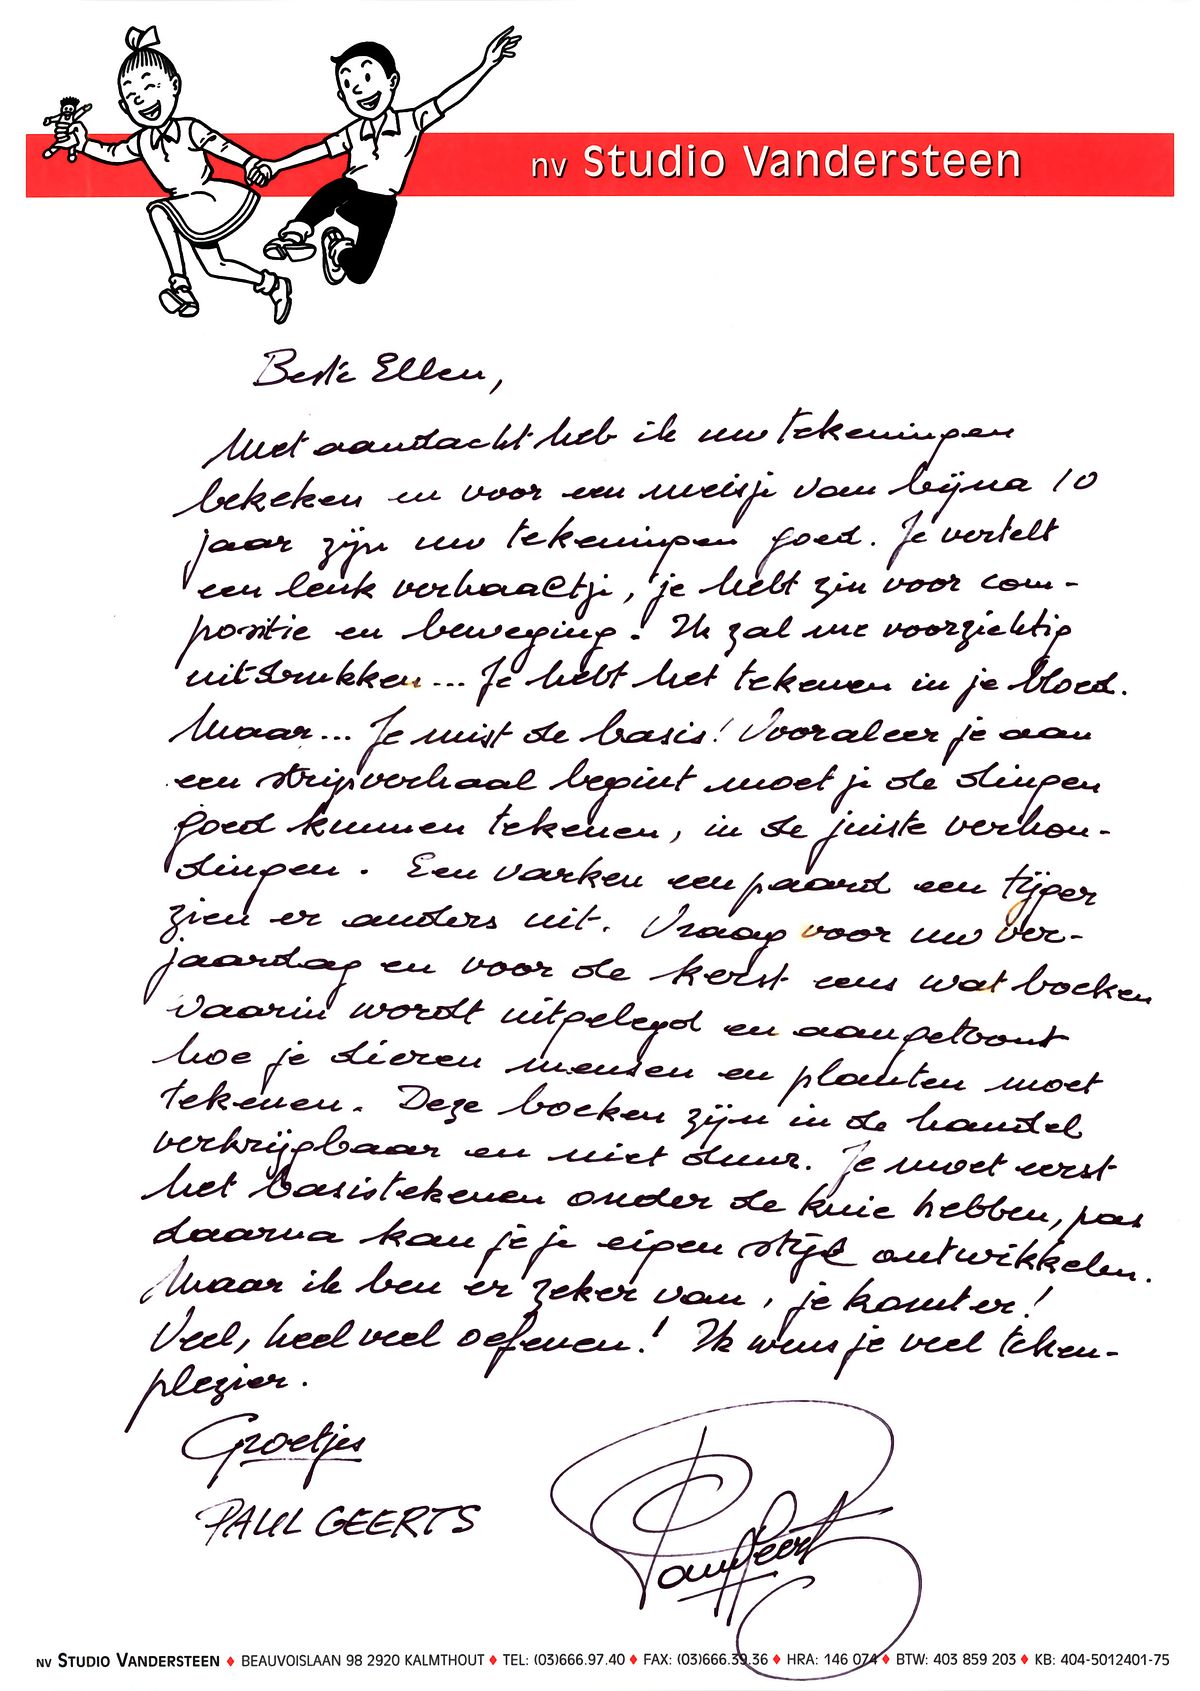 nv Studio Vandersteen
Beste Ellen,
Met aandacht heb ik uw tekeningen
bekeken en voor een meisje van bijna 10
jaar zijn uw tekeningen goed. Je vertelt
een leuk verhaaltje, je hebt zin voor com-
positie en beweging. Ik zal me voorzichtig
uitdrukken... Je hebt het tekenen in je bloed.
Maar... Je mist de basis! Vooraleer je aan
een stripverhaal begint moet je de dingen
goed kunnen tekenen, in de juiste verhou-
dingen. Een varken een paard een tijger
zien er anders uit. Vraag voor uw ver-
jaardag en voor de kerst eens wat boeken
waarin wordt uitgelegd en aangetoont
hoe je dieren mensen en planten moet
tekenen. Deze boeken zijn in de handel
verkrijgbaar en niet duur. Je moet eerst
het basistekenen onder de knie hebben, pas
daarna kan je je eigen stijl ontwikkelen.
Maar ik ben er zeker van, je komt er!
Veel, heel veel oefenen! Ik wens je veel teken-
plezier.
Groetjes
PAUL GEERTS
Paul Geerts
nv STUDIO VANDERSTEEN ♦ BEAUVOISLAAN 98 2920 KALMTHOUT ♦ TEL: (03)666.97.40 ♦ FAX: (03)666.39.36 ♦ HRA: 146 074 ♦ BTW: 403 859 203 ♦ KB: 404-5012401-75